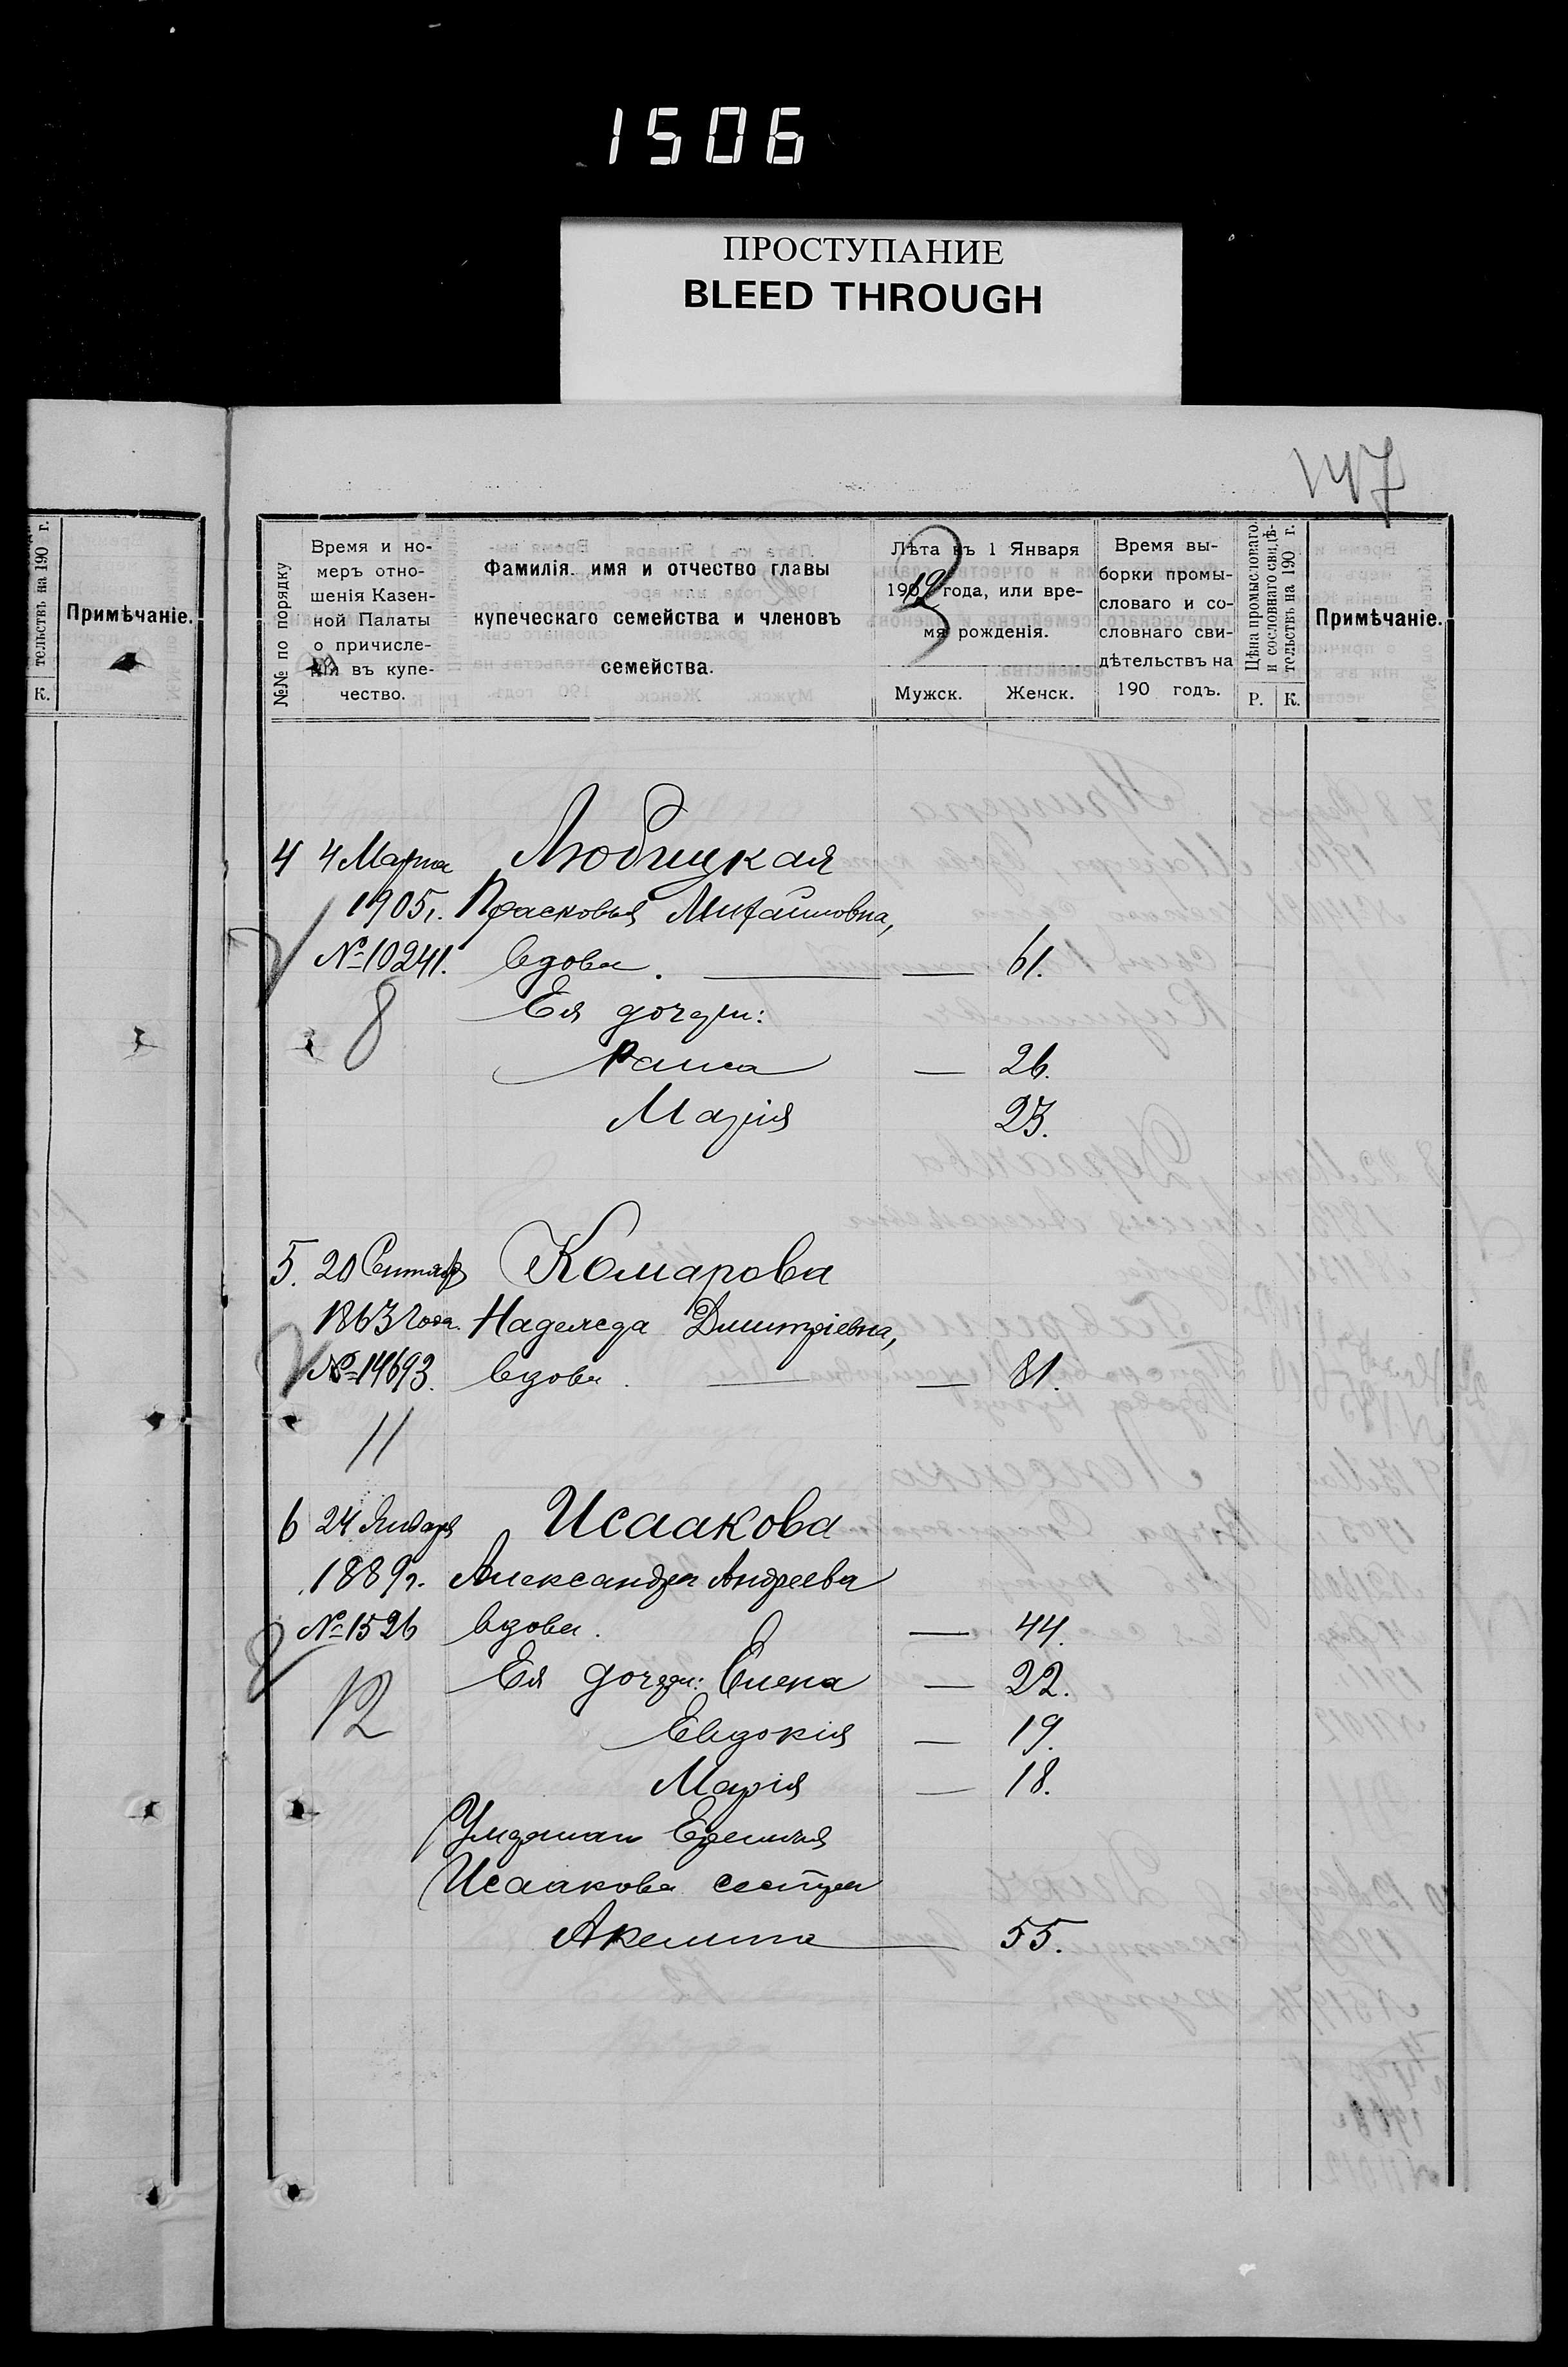 1506
ПРОСТУПАНИЕ
BLEED THROUGH
147
тельствъ на 190 г.
К.
Примѣчаніе.
№№ по порядку
Время и но-
меръ отно-
шенія Казен-
ной Палаты
о причисле-
ніи въ купе-
чество.
Фамилія. имя и отчество главы
купеческаго семейства и членовъ
семейства.
Лѣта къ 1 Января
190 года, или вре-
мя рожденія.
Мужск.
Женск.
Время вы-
борки промы-
словаго и со-
словнаго сви-
дѣтельствъ на
190 годъ.
Цѣна промысловаго
и сословнаго свидѣ-
тельствъ на 190 г.
Р.
К.
Примѣчаніе.
4 4 Марта Любицкая
1905г. Прасковья Михайловна,
№ 10241. вдова. — 61.
8 Ея дочери:
Раиса — 26.
Марія 23.
5. 20 Сентяб Комарова
1863 года. Надежда Дмитріевна,
№ 14693. вдова. — 81.
11
6 24 Января Исаакова
1889г. Александра Андреева
№ 1526 вдова. — 44.
12 Ея дочери: Елена — 22.
Евдокія — 19.
Марія — 18.
Исаакова сестра
Акелина — 55.